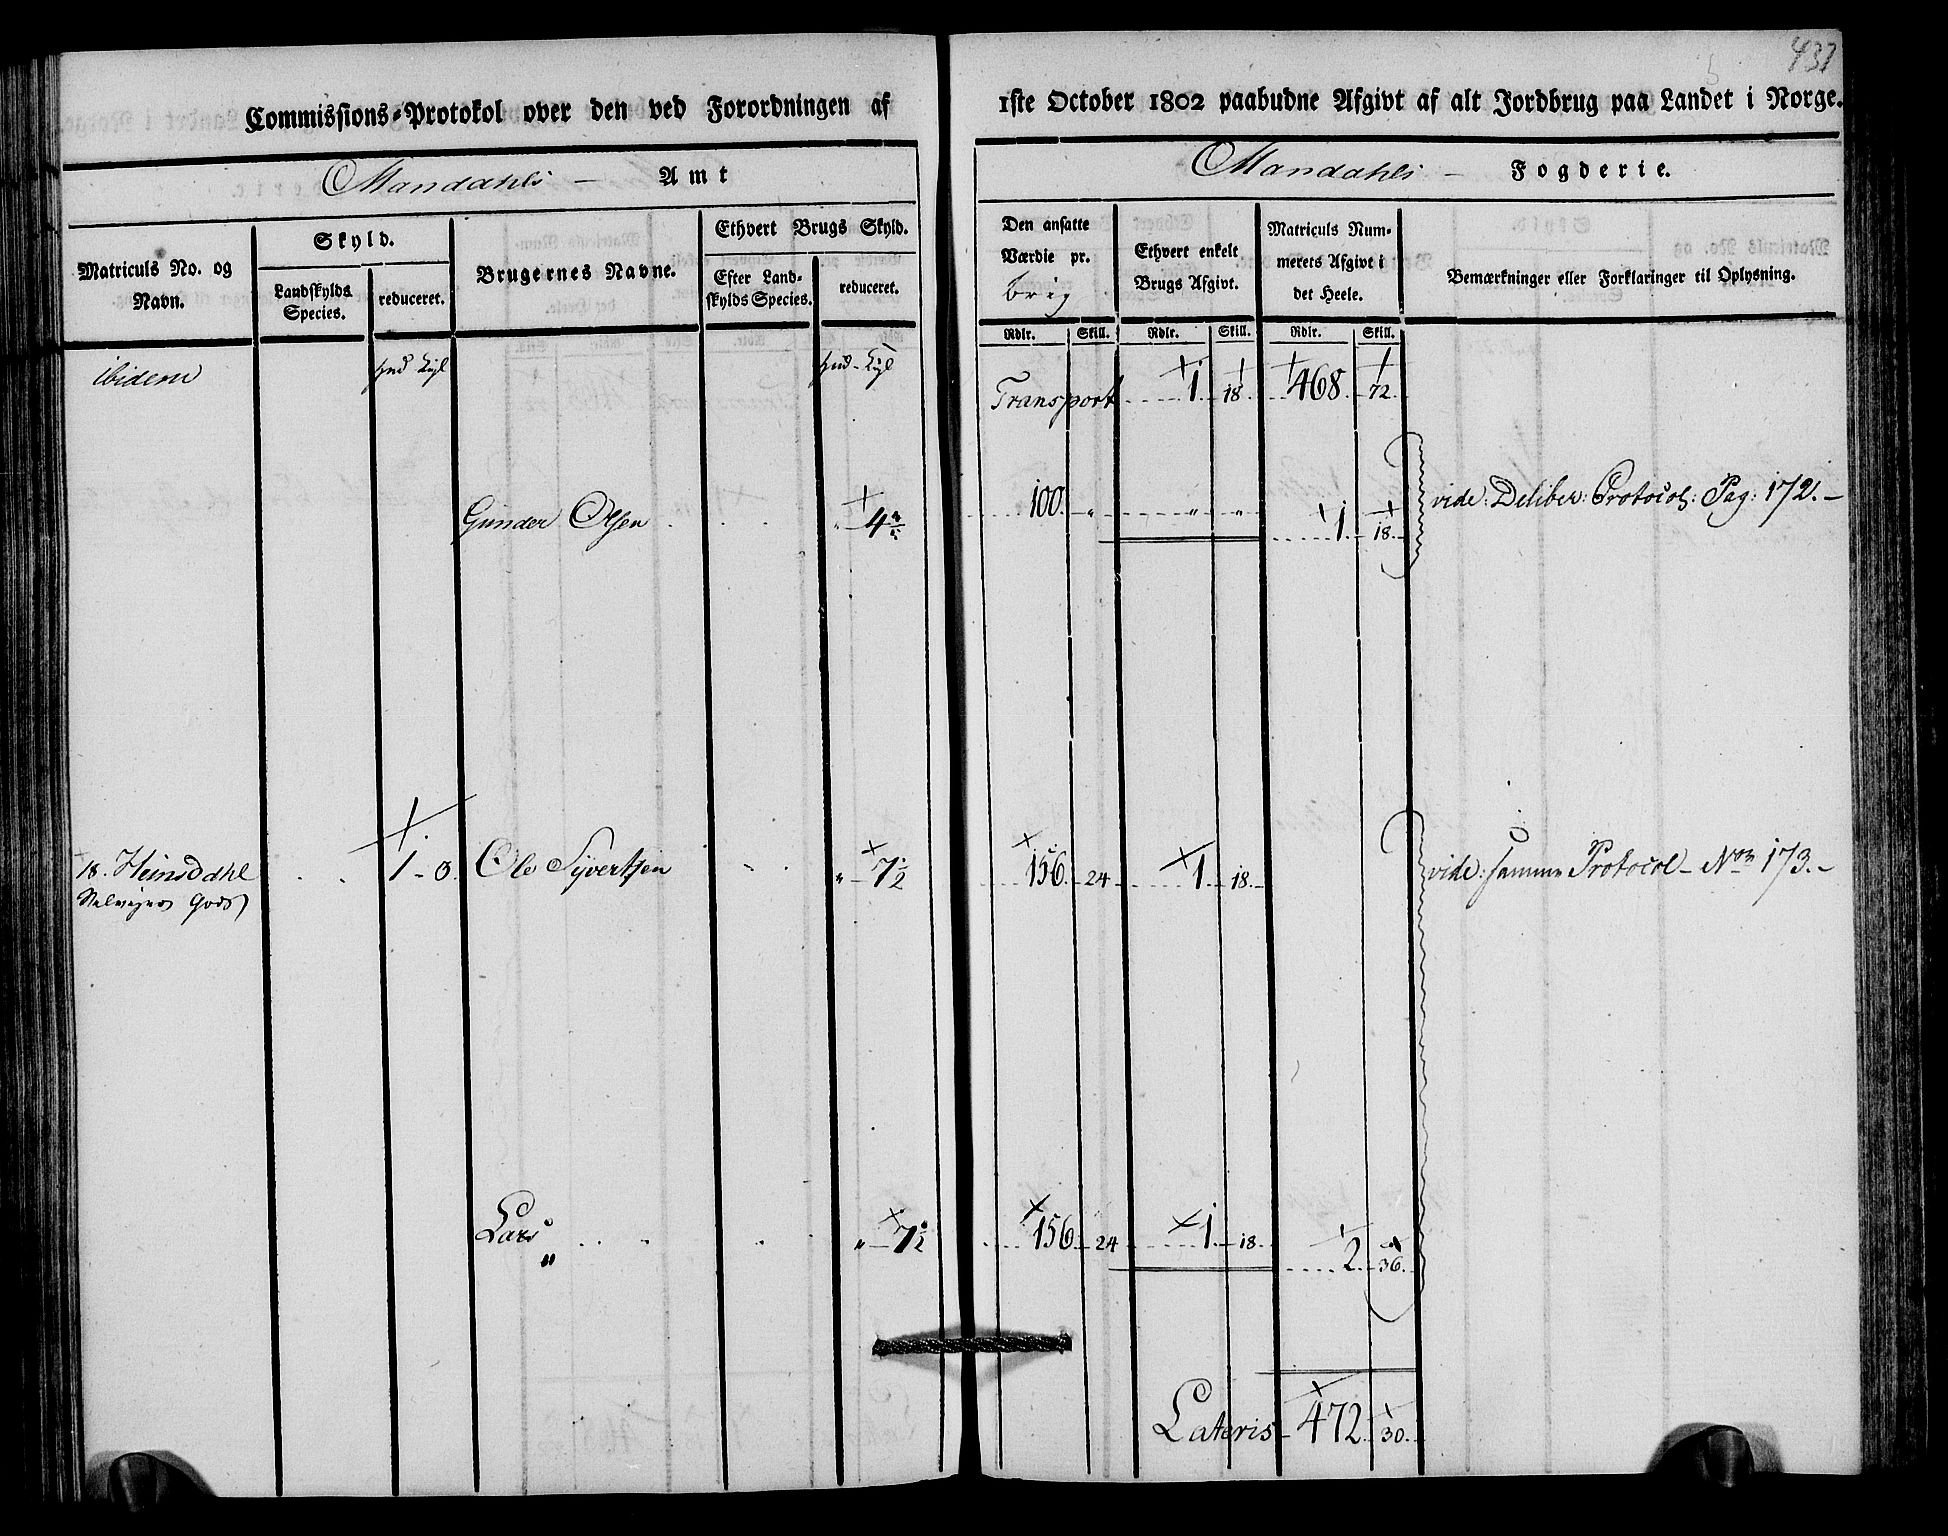 437
Commissions-Protokol over den ved Forordningen af 1ste October 1802 paabudne Afgivt af alt Jordbrug paa Landet i Norge.
Mandahls — Amt
Mandahls — Fogderie.
Matriculs No. og Navn.
Skyld.
Landskylds Species.
reduceret.
Brugernes Navne.
Ethvert Brugs Skyld.
Efter Landskylds Species.
reduceret.
Den ansatte Værdie pr. brug
Ethvert enkelt Brugs Afgivt.
Matriculs Nummerets Afgivt i det Heele.
Bemærkninger eller Forklaringer til Oplysning.
Rdlr. Skill. Rdlr. Skill. Rdlr. Skill.
ibidem
Transport 1 18 468 72
Gunder Olsen 100 " " " 1 18 vide: Deliber: Protocol: Pag: 172. —
18. Heinsdahl 1 - 0 Ole Syvertsen " 7 1/2 156 24 1 18 vide: samme Protocol — 173. —
Gods
Lars " " 7 1/2 156 24 1 18 2 36
Lateris 472 30